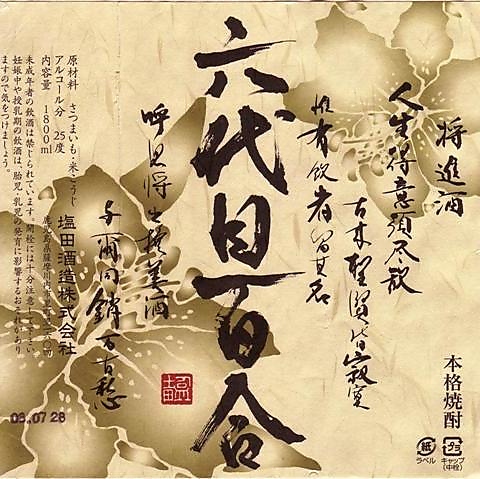 将進酒
人生得意須尽歓
古来聖賢皆寂寞
惟有飲者留其名
六代目百合
呼児将出換美酒
与爾同銷万古愁
本格焼酎
紙
ラベル
キャップ
(中栓)
原材料 さつまいも・米こうじ
アルコール分 25度
内容量 1800ml
塩田酒造株式会社
未成年者の飲酒は禁じられています。開栓には十分注意して下さい
妊娠中や授乳期の飲酒は、胎児・乳児の発育に影響するおそれがあり
ますので気をつけましょう。
03.07.28